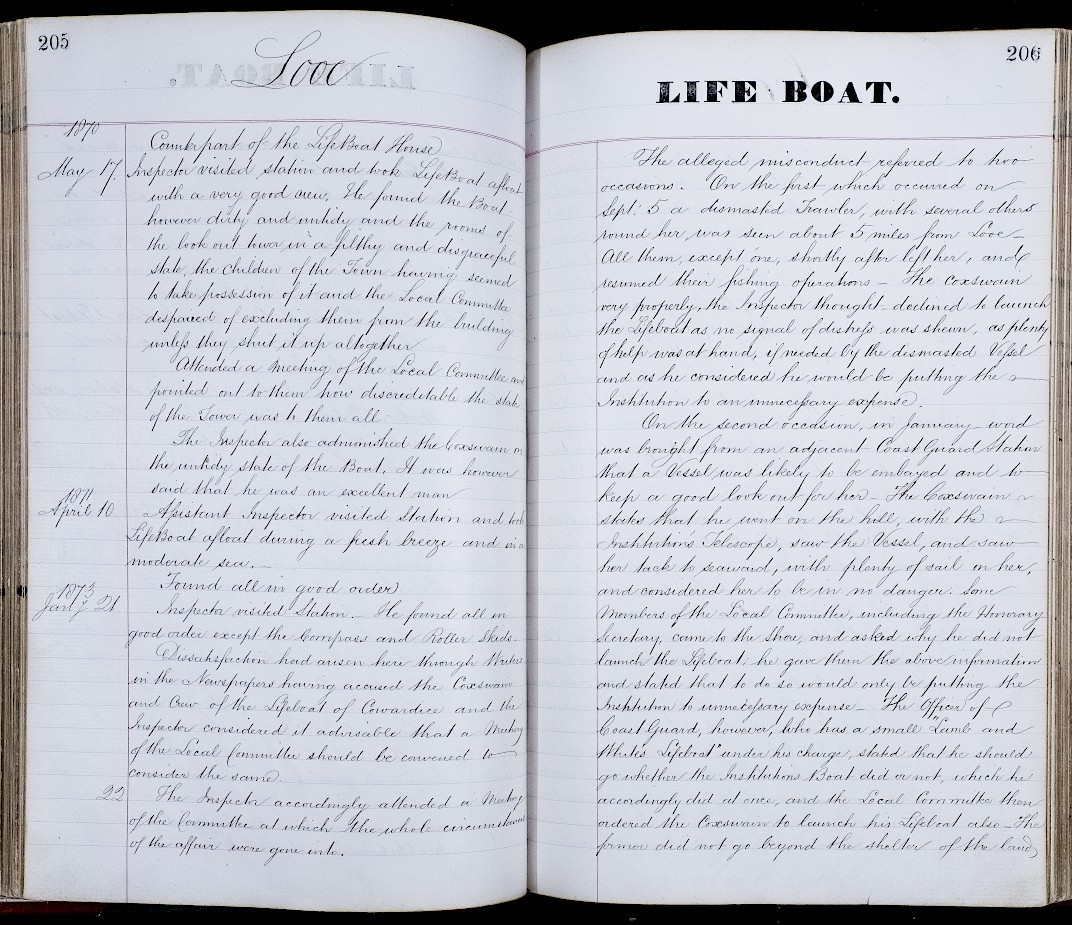 205
Looe
1870
Counterpart of the LifeBoat House
May 17. Inspector visited station and took LifeBoat afloat
with a very good crew. He found the Boat
however dirty and untidy and the rooms of
the look out tower in a filthy and disgraceful
state, the children of the Town having seemed
to take possession of it and the Local Committee
despaired of excluding them from the building
unless they shut it up altogether
Attended a Meeting of the Local Committee and
pointed out to them how discreditable the state
of the Tower was to them all
The Inspector also admonished the Coxswain on
the untidy state of the Boat. It was however
said that he was an excellent man
1871
April 10 Assistant Inspector visited Station and took
LifeBoat afloat during a fresh breeze and in a
moderate sea. —
Found all in good order
1873
Jany 21 Inspector visited Station. He found all in
good order except the Compass and Roller Skids.
Dissatisfaction had arisen here through Writers
in the Newspapers having accused the Coxswain
and Crew of the Lifeboat of Cowardice and the
Inspector considered it advisable that a Meeting
of the Local Committee should be convened to
consider the same.
22 The Inspector accordingly attended a Meeting
of the Committee at which the whole circumstances
of the affair were gone into.
206
LIFE BOAT.
The alleged misconduct referred to two
occasions. On the first which occurred on
Sept: 5 a dismasted Trawler, with several others
round her, was seen about 5 miles from Looe
All them, except one, shortly after left her, and
resumed their fishing operations — The Coxswain
very properly, the Inspector thought — declined to launch
the Lifeboat as no signal of distress was shewn, as plenty
of help was at hand, if needed by the dismasted Vessel
and as he considered he would be putting the
Institution to an unnecessary expense.
On the second occasion, in January — word
was brought from an adjacent Coast Guard Station
that a Vessel was likely to be embayed and to
keep a good look out for her — The Coxswain
states that he went on the hill, with the
Institution's Telescope, saw the Vessel, and saw
her tack to seaward, with plenty of sail on her,
and considered her to be in no danger. Some
Members of the Local Committee, including the Honorary
Secretary, came to the shore, and asked why he did not
launch the Lifeboat; he gave them the above information
and stated that to do so would only be putting the
Institution to unnecessary expense — The Officer of
Coast Guard, however, who has a small "Lamb and
White's Lifeboat" under his charge, stated that he should
go whether the Institutions Boat did or not, which he
accordingly did at once, and the Local Committee then
ordered the Coxswain to launch his Lifeboat also — The
former did not go beyond the shelter of the land